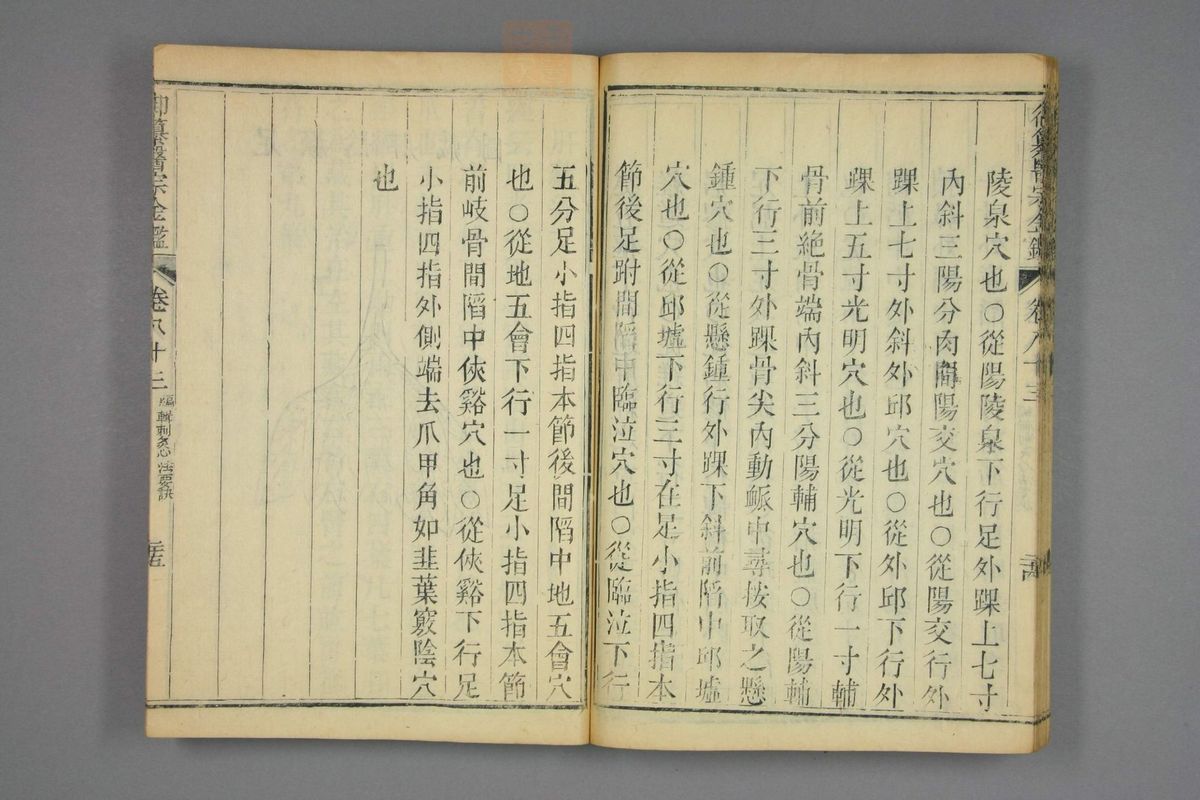 御纂醫宗金鑑 卷八十三
陵泉穴也○從陽陵泉下行足外踝上七寸
內斜三陽分肉間陽交穴也○從陽交行外
踝上七寸外斜外邱穴也○從外邱下行外
踝上五寸光明穴也○從光明下行一寸輔
骨前絕骨端內斜三分陽輔穴也○從陽輔
下行三寸外踝骨尖內動脈中尋按取之懸
鍾穴也○從懸鍾行外踝下斜前䧟中邱墟
穴也○從邱墟下行三寸在足小指四指本
節後足跗間䧟中臨泣穴也○從臨泣下行
五分足小指四指本節後間䧟中地五會穴
也○從地五會下行一寸足小指四指本節
前岐骨間䧟中俠谿穴也○從俠谿下行足
小指四指外側端去爪甲角如韭葉竅陰穴
也
御纂醫宗金鑑 卷八十三 編輯刺灸心法要訣 二十五